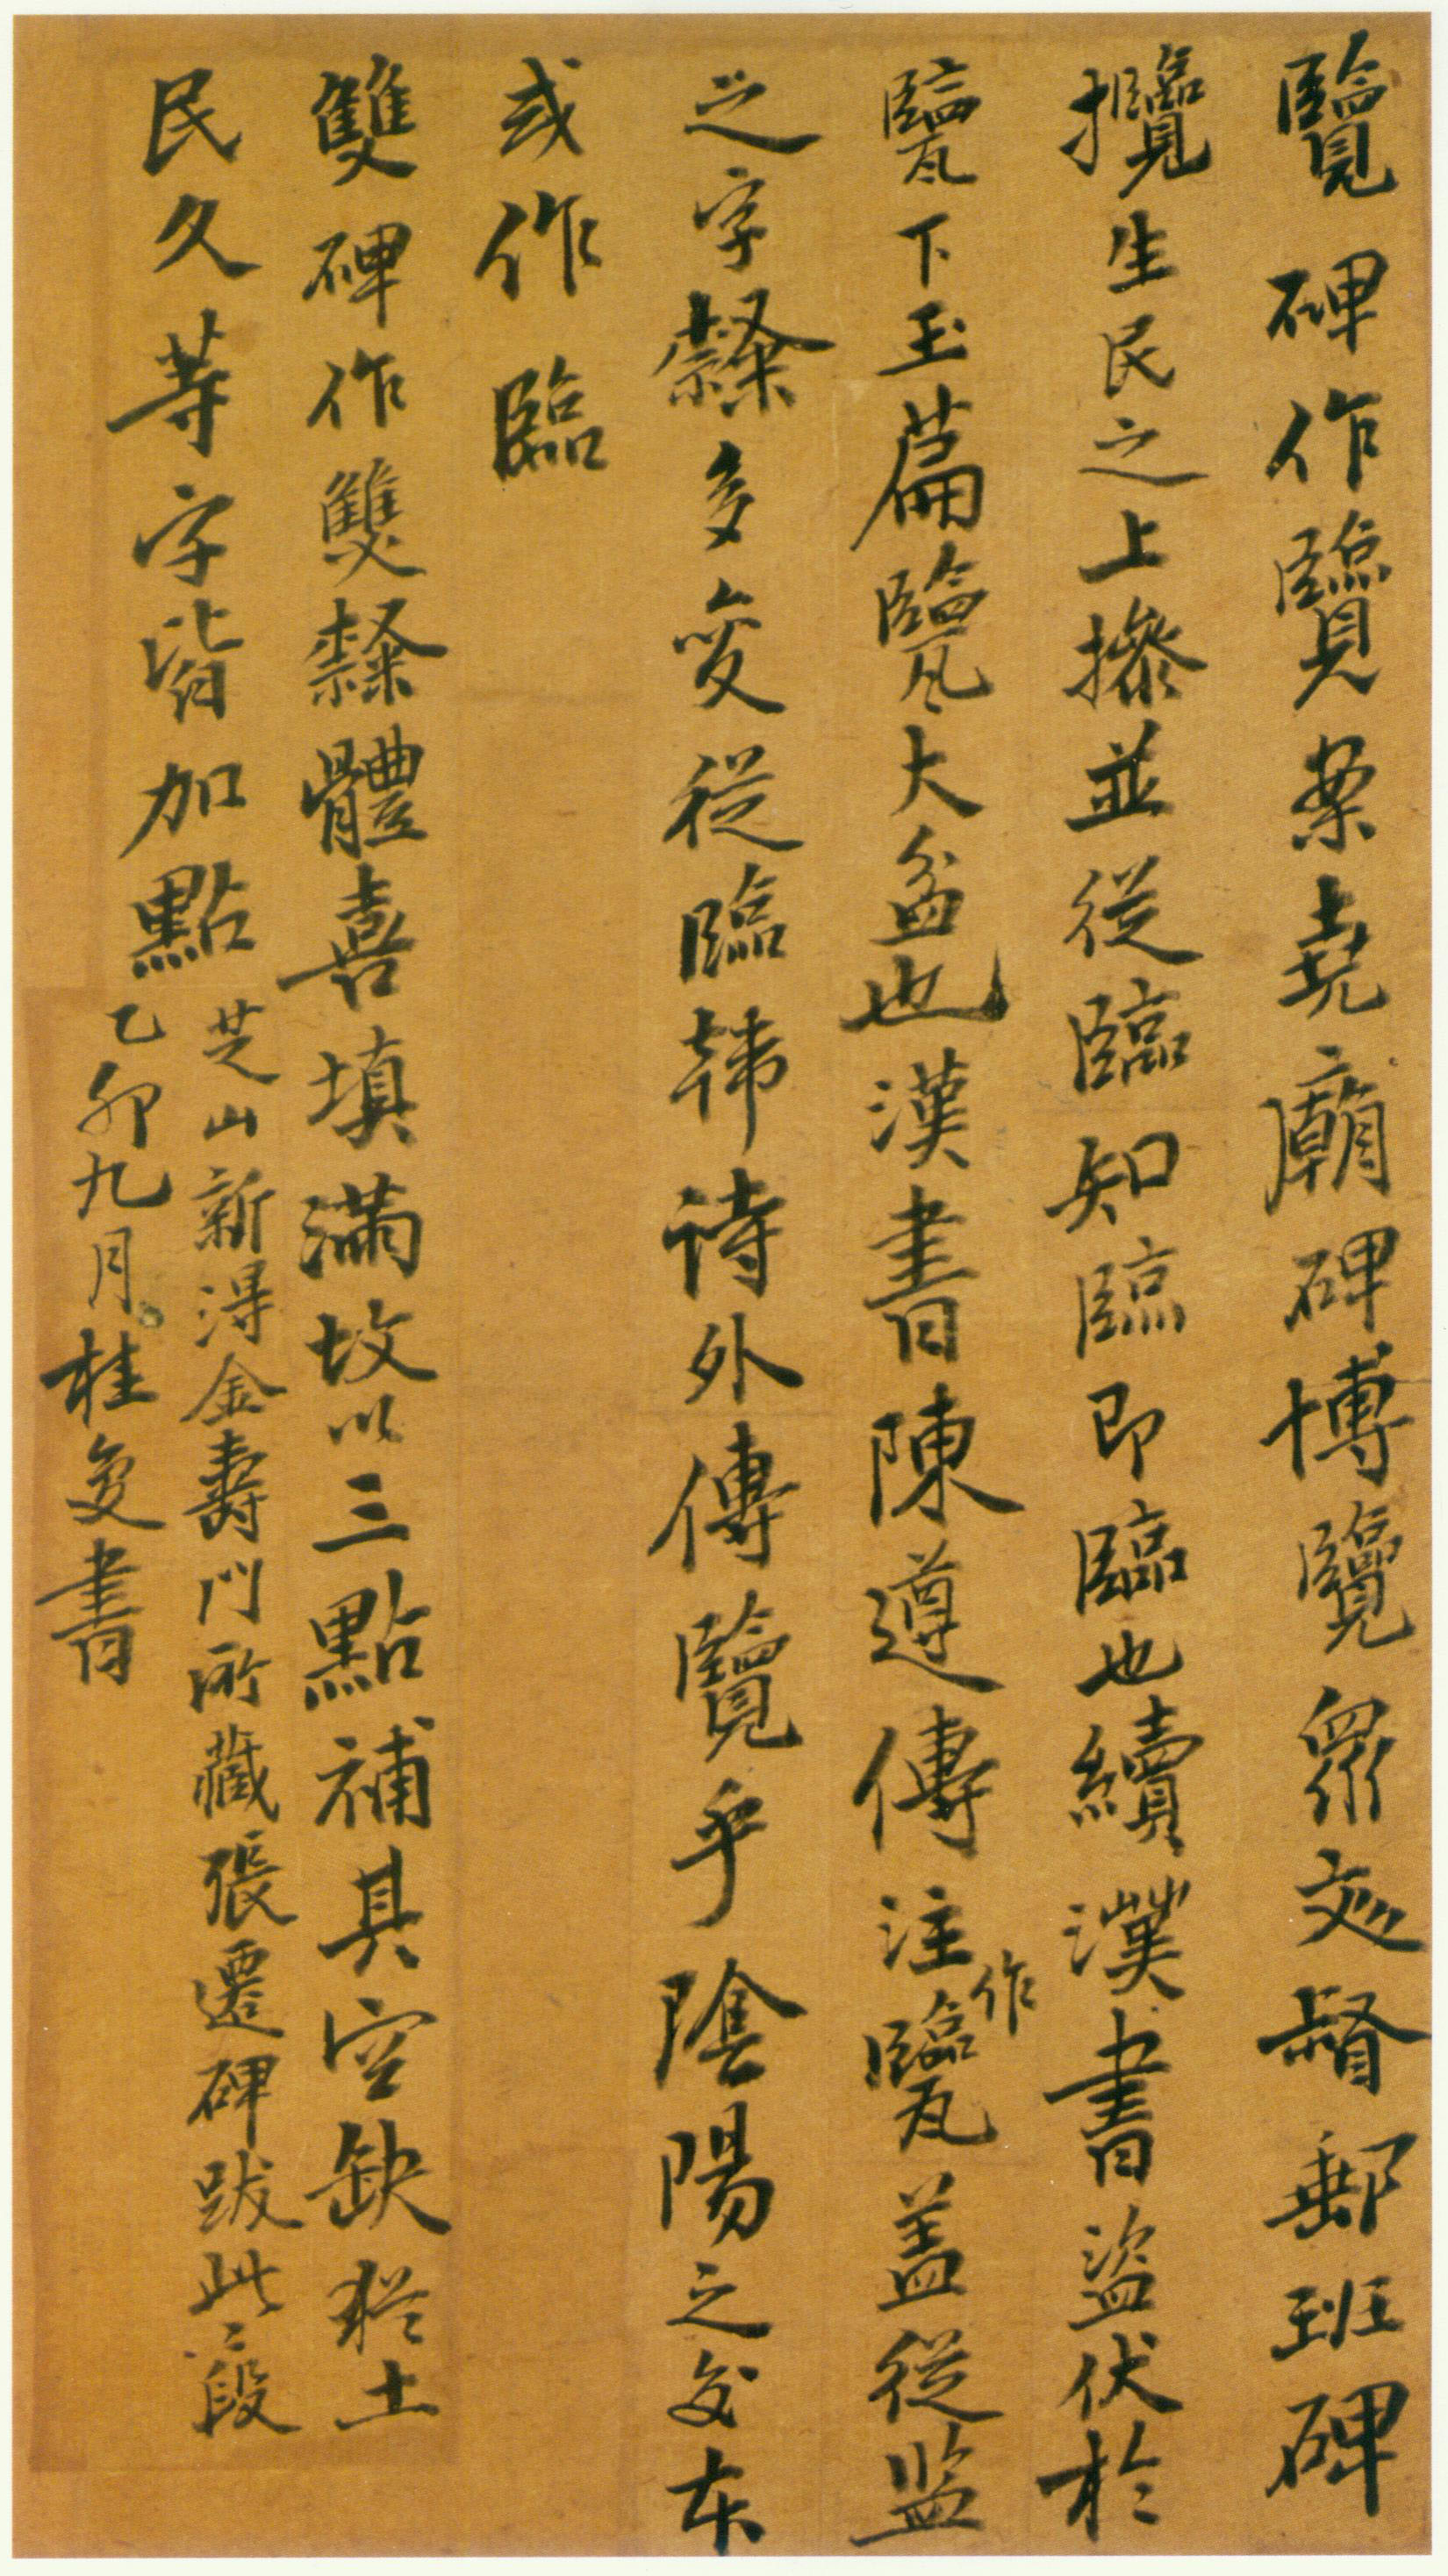 覽碑作覽案堯廟碑博覽眾文督郵班碑
攬生民之上摻並從臨知臨即臨也續漢書盜伏於
甓下玉篇甓大盆也漢書陳遵傳注作甓盖從監
之字隸多变從臨韩诗外傳覽乎陰陽之交本
或作臨
雙碑作雙隸體喜填滿故以三點補其空缺猶土
民久等字皆加點
芝山新淂金壽门所藏張遷碑跋此二段
乙卯九月桂复書